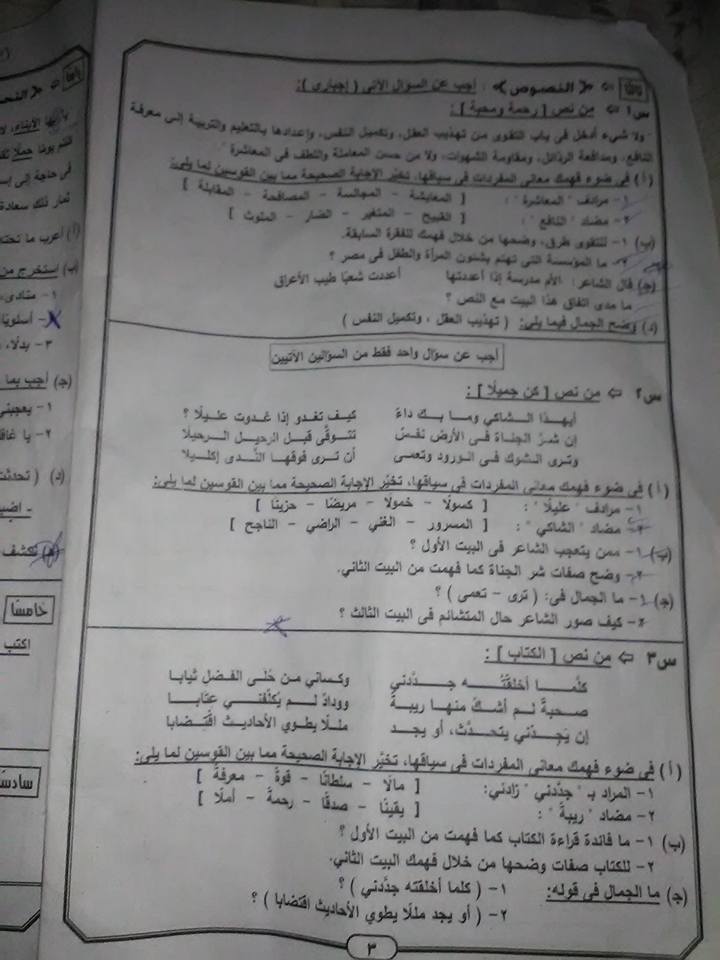 ثالثًا ⇐ « النصوص » : أجب عن السؤال الآتى ( إجبارى ) :
س١ ⇐ من نص [ رحمة ومحبة ] :
" ولا شيء أدخل فى باب التقوى من تهذيب العقل، وتكميل النفس، وإعدادها بالتعليم والتربية إلى معرفة
النافع، ومدافعة الرذائل، ومقاومة الشهوات، ولا من حسن المعاملة واللطف فى المعاشرة "
( أ ) فى ضوء فهمك معانى المفردات فى سياقها، تخيّر الإجابة الصحيحة مما بين القوسين لما يلى:
١- مرادف " المعاشرة " : [ المعايشة - المجالسة - المصافحة - المقابلة ]
٢- مضاد " النافع " : [ القبيح - المتغير - الضار - الملوث ]
(ب) ١- للتقوى طرق، وضحها من خلال فهمك للفقرة السابقة.
٢- ما المؤسسة التى تهتم بشئون المرأة والطفل فى مصر ؟
(ج) قال الشاعر: الأم مدرسة إذا أعددتها أعددت شعبًا طيب الأعراق
ما مدى اتفاق هذا البيت مع النص ؟
(د) وضح الجمال فيما يلى: ( تهذيب العقل ، وتكميل النفس )
أجب عن سؤال واحد فقط من السؤالين الآتيين
س٢ ⇐ من نص [ كن جميلًا ] :
أيهذا الشاكي وما بك داءٌ كيف تغدو إذا غدوت عليلًا ؟
إن شرّ الجناة فى الأرض نفسٌ تتوقّى قبل الرحيل الرحيلا
وترى الشوك فى الورود وتعمى أن ترى فوقها الندى إكليلا
( أ ) فى ضوء فهمك معانى المفردات فى سياقها، تخيّر الإجابة الصحيحة مما بين القوسين لما يلى:
١- مرادف " عليلًا " : [ كسولًا - خمولًا - مريضًا - حزينًا ]
٢- مضاد " الشاكي " : [ المسرور - الغني - الراضي - الناجح ]
(ب) ١- ممن يتعجب الشاعر فى البيت الأول ؟
٢- وضح صفات شر الجناة كما فهمت من البيت الثانى.
(ج) ١- ما الجمال فى: ( ترى - تعمى ) ؟
٢- كيف صور الشاعر حال المتشائم فى البيت الثالث ؟
س٣ ⇐ من نص [ الكتاب ] :
كلّما أخلقتُه جدّدني وكساني من حُلى الفضل ثيابا
صحبةٌ لم أشكُ منها ريبةً وودادٌ لم يكلّفني عتابا
إن يَجِدْني يتحدّث، أو يجد مللًا يطوي الأحاديث اقتضابا
( أ ) فى ضوء فهمك معانى المفردات فى سياقها، تخيّر الإجابة الصحيحة مما بين القوسين لما يلى:
١- المراد بـ " جدّدني " زادني: [ مالًا - سلطانًا - قوةً - معرفةً ]
٢- مضاد " ريبةً " : [ يقينًا - صدقًا - رحمةً - أملًا ]
(ب) ١- ما فائدة قراءة الكتاب كما فهمت من البيت الأول ؟
٢- للكتاب صفات وضحها من خلال فهمك البيت الثاني.
(ج) ما الجمال فى قوله: ١- ( كلما أخلقته جدّدني ) ؟
٢- ( أو يجد مللًا يطوي الأحاديث اقتضابا ) ؟
٣
( أ ) أعرب ما تحته
(ب) استخرج من
١- منادى،
٢- أسلوبًا
٣- بدلًا،
(ج) أجب بما
١- يعجبنى
(د) ( تحدثت
خامسًا
اكتب
سادسًا